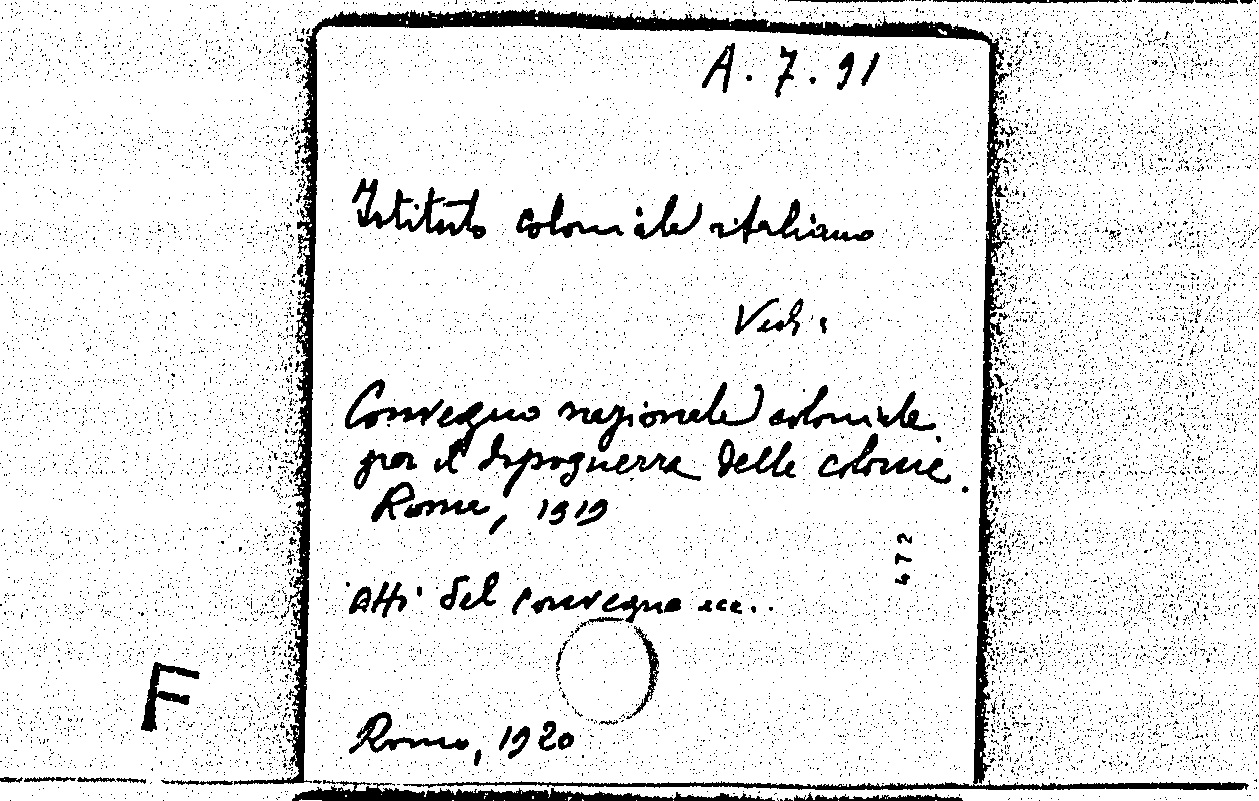 A. 7. 91
Istituto coloniale italiano
Vedi:
Convegno nazionale coloniale
per il dopoguerra delle colonie.
Roma, 1919
472
Atti del convegno ecc..
F
Roma, 1920